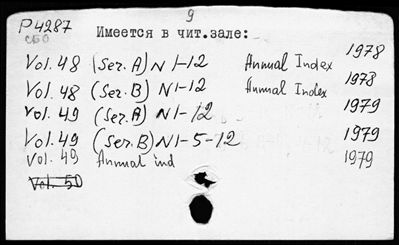 9
P4287
СБО
Имеется в чит.зале:
Vol. 48 (Ser. A) N 1-12 Annual Index 1978
Vol. 48 (Ser. B) N 1-12 Annual Index 1978
Vol. 49 (Ser. A) N 1-12 1979
Vol. 49 (Ser. B) N 1-5-12 1979
Vol. 49 Annual ind 1979
Vol. 50